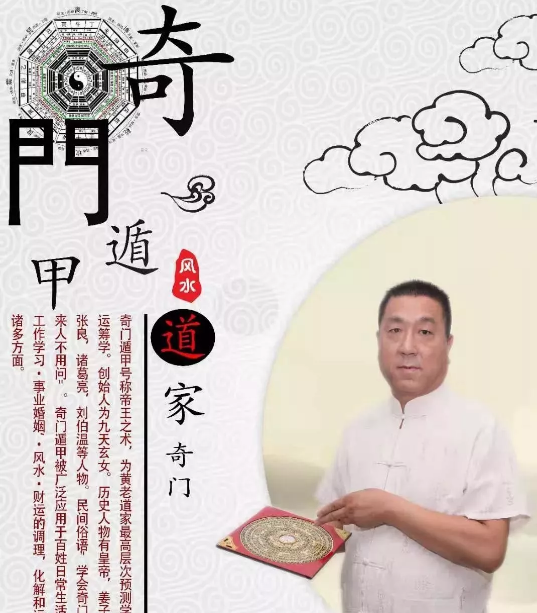 奇
門
遁
甲
风水
道
家
奇门
奇门遁甲号称帝王之术，为黄老道家最高层次预测学
运筹学。创始人为九天玄女。历史人物有皇帝，姜子
张良，诸葛亮，刘伯温等人物。民间俗语，学会奇门
来人不用问"。奇门遁甲被广泛应用于百姓日常生活
工作学习·事业婚姻·风水·财运的调理，化解和
诸多方面。